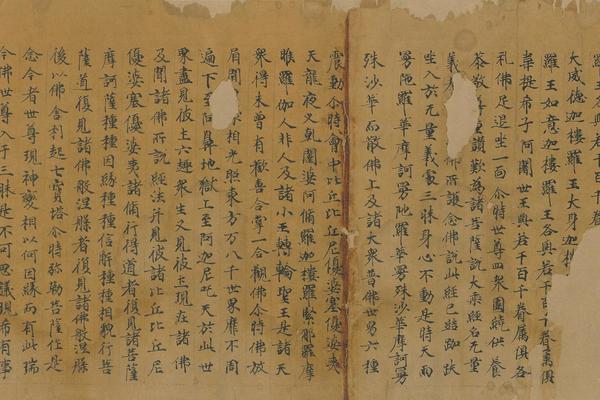 羅王各與若干百千眷
大威德迦樓羅王大身迦樓
羅王如意迦樓羅王各與若干百千眷屬俱
韋提希子阿闍世王與若干百千眷屬俱各
礼佛足退坐一面尒時世尊四衆圍繞供養
恭敬尊重讚歎為諸菩薩說大乘經名无量
義 佛所護念佛說此經已結跏趺
坐入於无量義處三昧身心不動是時天雨
曼陁羅華摩訶曼陁羅華曼殊沙華摩訶曼
殊沙華而散佛上及諸大衆普佛世界六種
震動尒時會中比丘比丘尼優婆塞優婆夷
天龍夜叉乹闥婆阿脩羅迦樓羅緊那羅摩
睺羅伽人非人及諸小王轉輪聖王是諸天
衆得未曾有歡喜合掌一心觀佛尒時佛放
眉間 相光照東方万八千世界靡不周
遍下至阿鼻地獄上至阿迦尼吒天於此世
界盡見彼土六趣衆生又見彼土現在諸佛
及聞諸佛所說經法并見彼諸比丘比丘尼
優婆塞優婆夷諸脩行得道者復見諸菩薩
摩訶薩種種因緣種種信解種種相貌行菩
薩道復見諸佛般涅槃者復見諸佛般涅槃
後以佛舍利起七寶塔尒時弥勒菩薩作是
念今者世尊現神變相以何因緣而有此瑞
今佛世尊入于三昧是不可思議現希有事